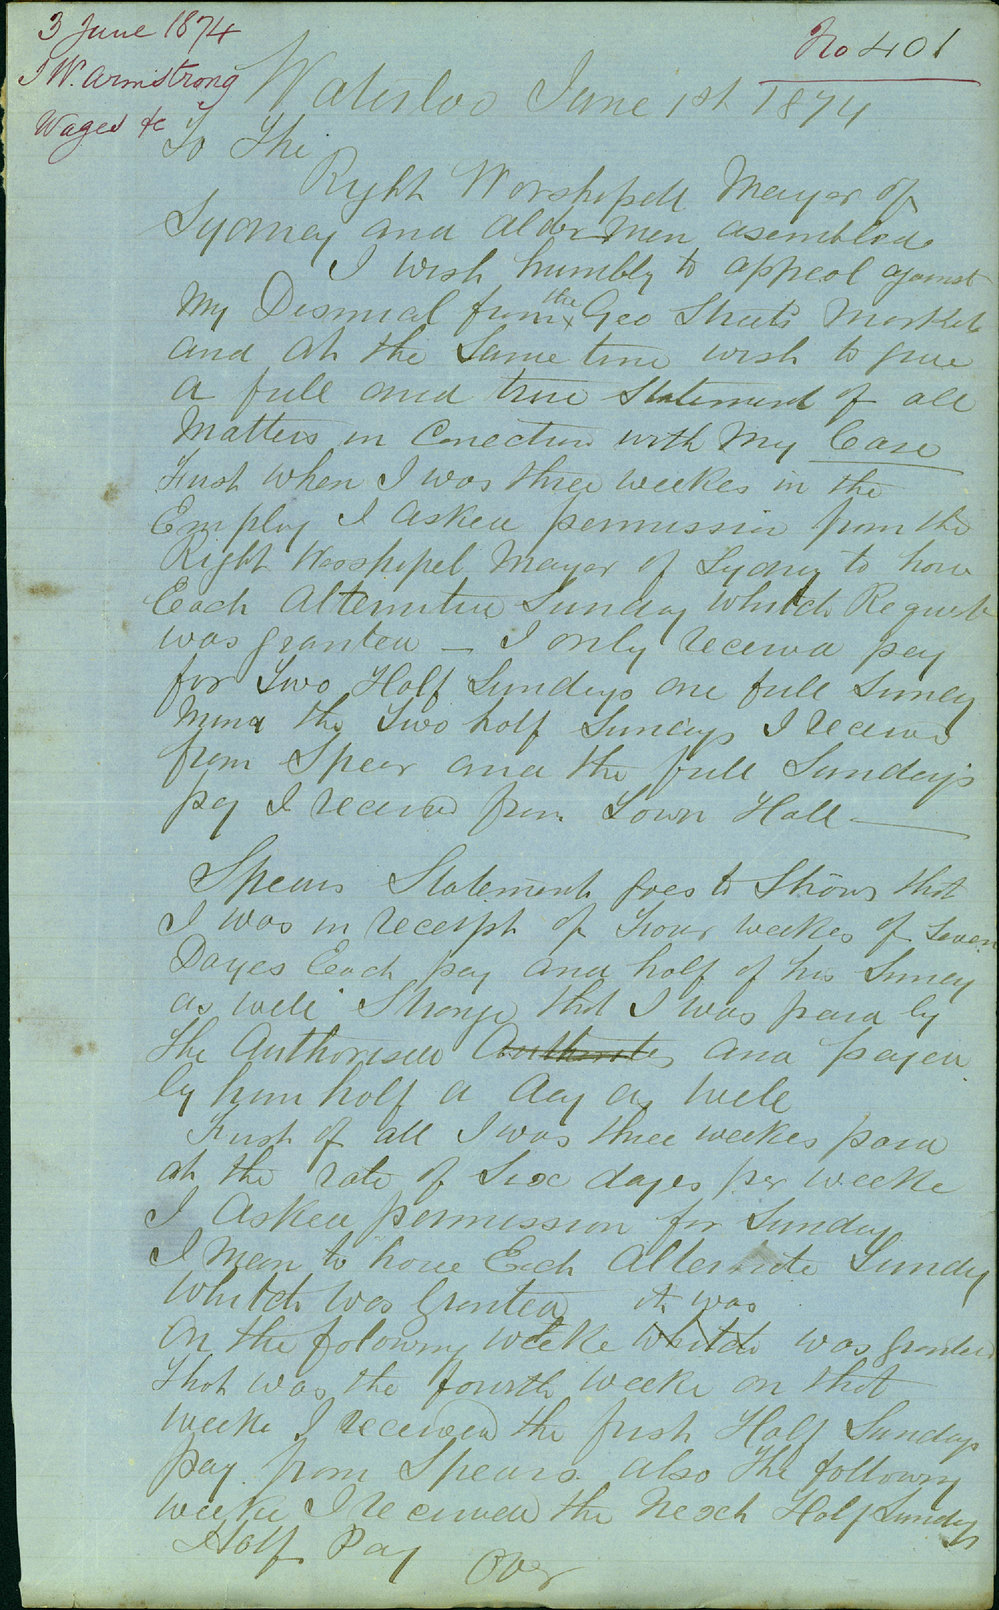 3 June 1874
J W. Armstrong
Wages &c
No 401
Waterloo June 1st 1874
To The
Right Worshipell Mayor of
Sydney and Alder Men asembled
I wish humbly to appeal against
My Dismisal from the Geo Street Markets
and at the Same time wish to give
a full and true Statement of all
Matters in Conection with My Case
First when I was three weekes in the
Employ I Asked permission from the
Right Worshipel Mayor of Sydney to have
Each Alternitive Sunday whitch Request
was granted — I only received pay
for Two Half Sundays one full Sunday
Mind the Two half Sundays I received
from Spear and the full Sunday's
pay I received from Town Hall —
Spears Statement goes to Show that
I was in receipt of Four weekes of Seven
Dayes Each pay and half of his Sunday
as well Strange that I was paid by
the Authorised Authorites and payed
by him half a day as well
First of all I was three weekes paid
at the rate of Six dayes per weeke
I Asked permission for Sunday
I Mean to have Each Alternite Sunday
whitch was Granted it was
on the folowing weeke whitch was granted
that was the fourth weeke on that
weeke I received the first Half Sundays
pay from Spears also the following
weeke I received the Next Half Sundays
Half Pay Over